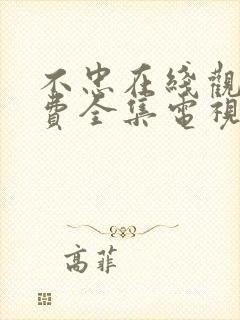 不忠在綫觀
費全集電視
高菲